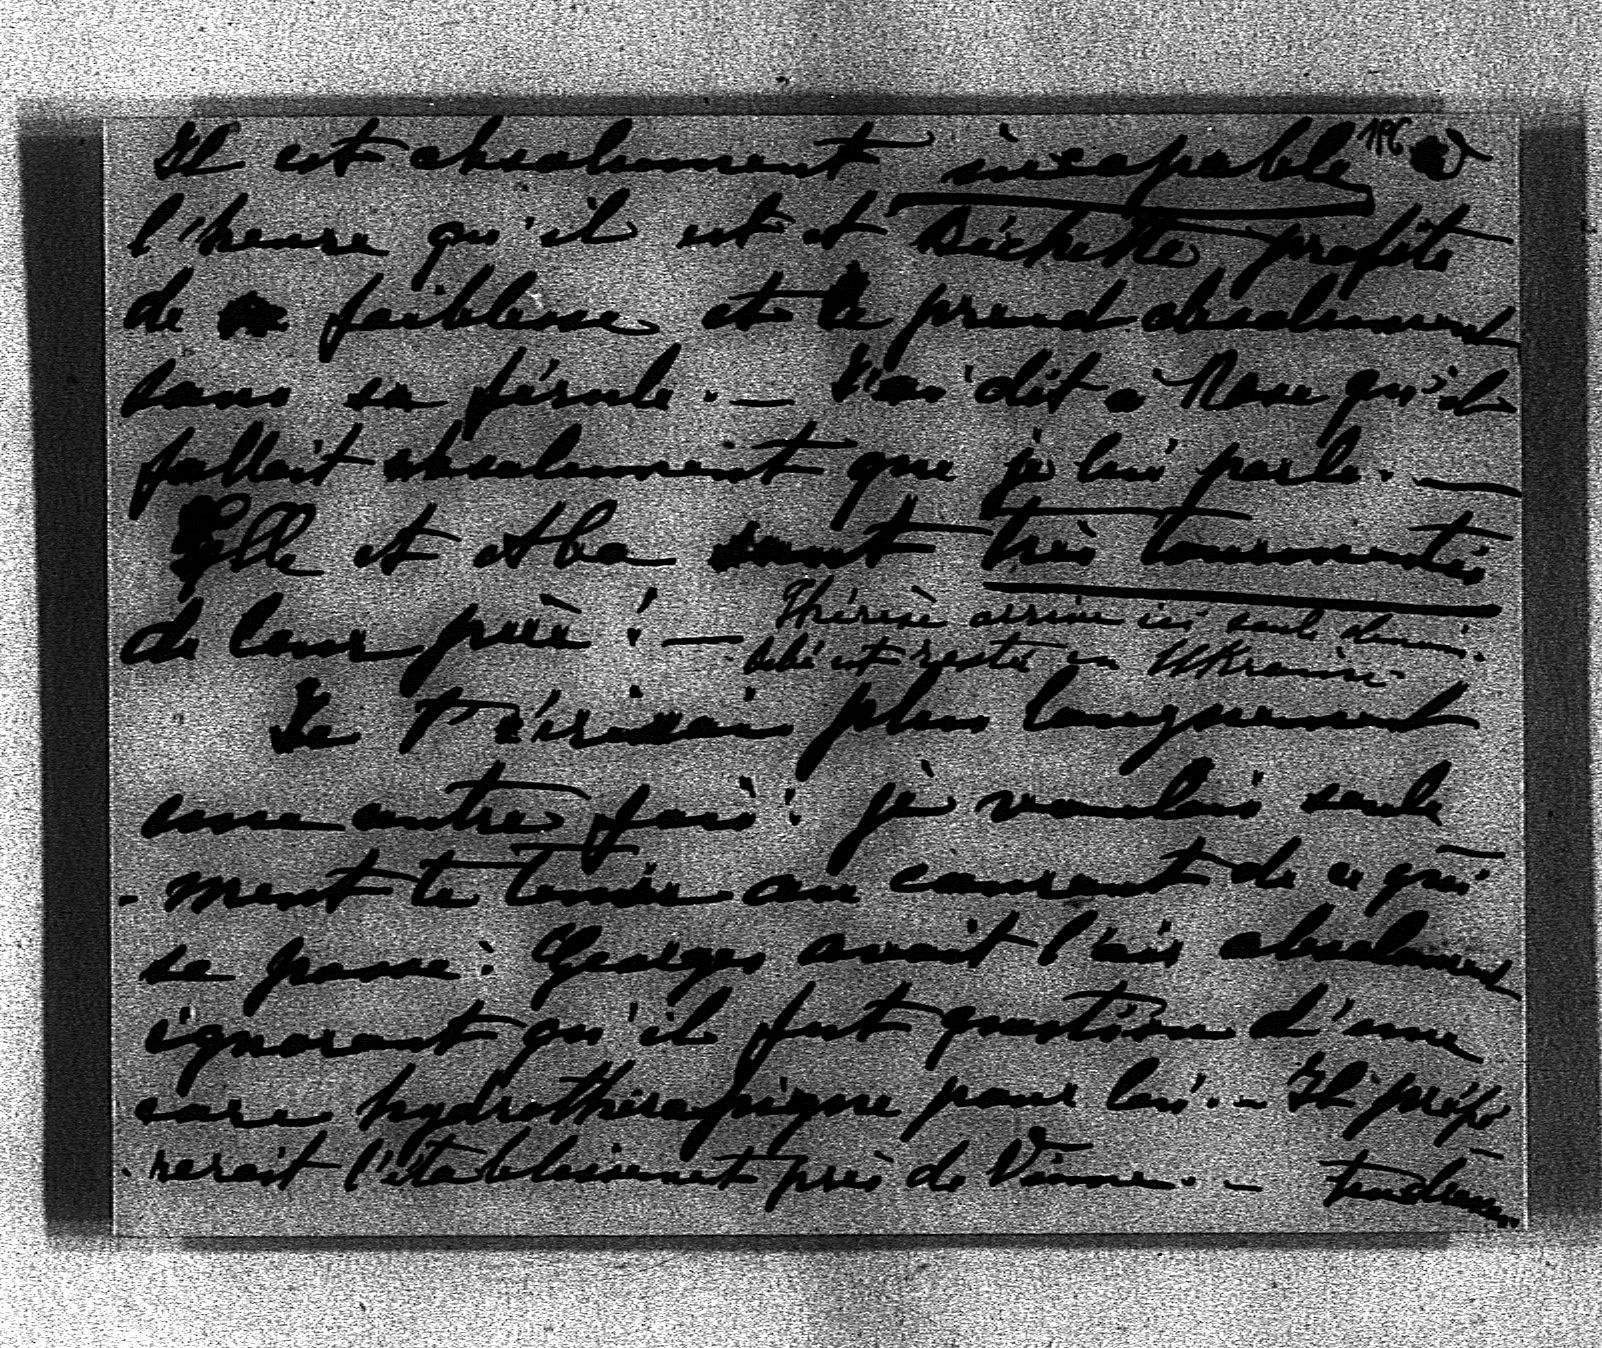 Il est absolument incapable à
l'heure qu'il est et Bichette profite
de sa faiblesse et le prend absolument
sous sa férule. — J'ai dit à Rose qu'il
fallait absolument que je lui parle. —
Elle et Aba sont très tourmentés
de leur père! —
Thérèse arrive ici seule demain.
bébé est resté en Ukraine
Je t'écrirai plus longuement
une autre fois: je voulais seule
- ment te tenir au courant de ce qui
se passe: Georges avait l'air absolument
ignorant qu'il fut question d'une
cure hydrothérapique pour lui. — Il préfé
- rerait l'établissement près de Vienne. — tendresses